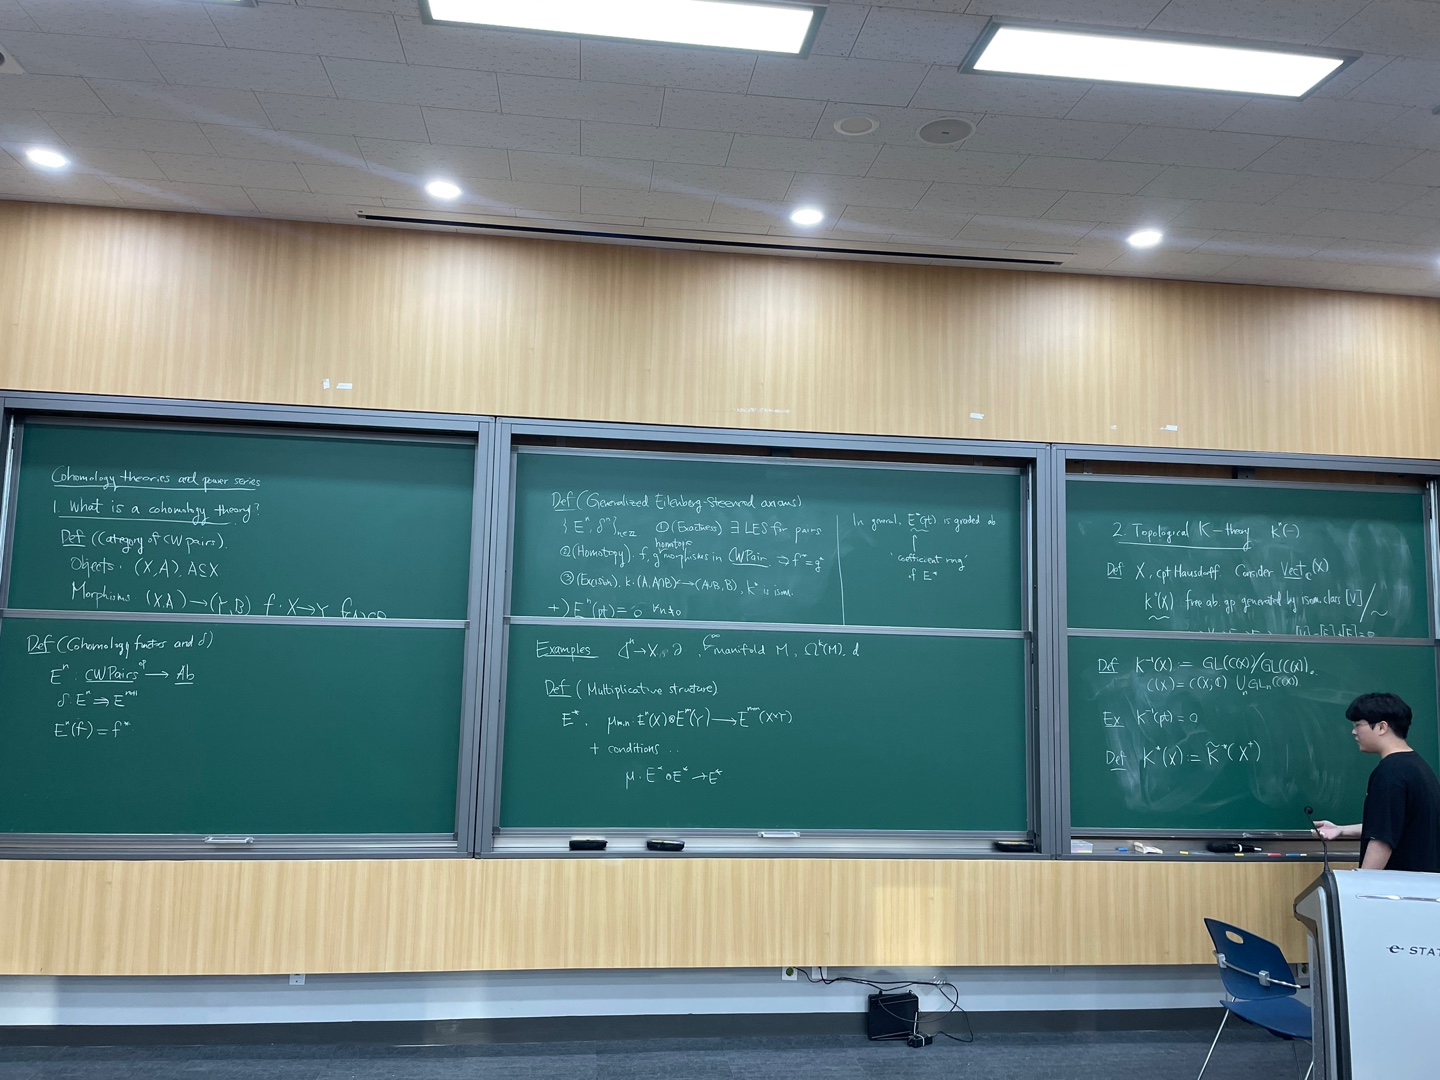 Cohomology theories and power series
1. What is a cohomology theory?
Def (Category of CW pairs).
Objects: (X,A), A⊆X
Morphisms (X,A) → (Y,B) f: X→Y
Def (Cohomology functor and δ)
Eⁿ: CWPairs^op → Ab
δ: Eⁿ ⇒ Eⁿ⁺¹
Eⁿ(f) = f*
Def (Generalized Eilenberg-Steenrod axioms)
{Eⁿ, δⁿ}_{n∈ℤ} ① (Exactness) ∃ LES for pairs
② (Homotopy). f, g homotopic morphisms in CWPair ⇒ f* = g*
③ (Excision). k: (A, A∩B) ↪ (A∪B, B), k* is isom.
+) Eⁿ(pt) = 0 ∀n≠0
In general, E*(pt) is graded ab
'coefficient ring'
of E*
Examples Δⁿ → X, ∂ C^∞ manifold M, Ωᵏ(M), d
Def (Multiplicative structure)
E*. μ_{m,n}: Eⁿ(X)⊗Eᵐ(Y) → Eⁿ⁺ᵐ(X×Y)
+ conditions ..
μ: E*⊗E* → E*
2. Topological K-theory K*(-)
Def X, cpt Hausdorff. Consider Vect_ℂ(X)
K⁰(X) free ab. gp. generated by isom. class [V]/~
Def K⁻¹(X) := GL(C(X))/GL(C(X))₀
C(X) = C(X, ℂ) ⋃ₙ GLₙ(C(X))
Ex K⁻¹(pt) = 0
Def K*(X) := K̃*(X⁺)
e-STAT